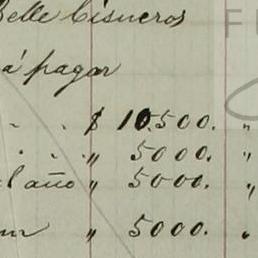 Belle Cisneros
á pagar
" " $ 10.500. "
" " " 5000. "
l año " 5000. "
" 5000. "